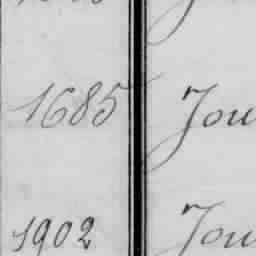 1685 Jou
1902 Jou